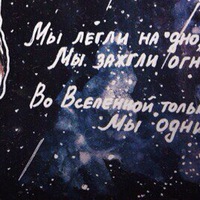 Мы легли на дно
Мы зажгли огн
Во Вселенной толь
Мы одни